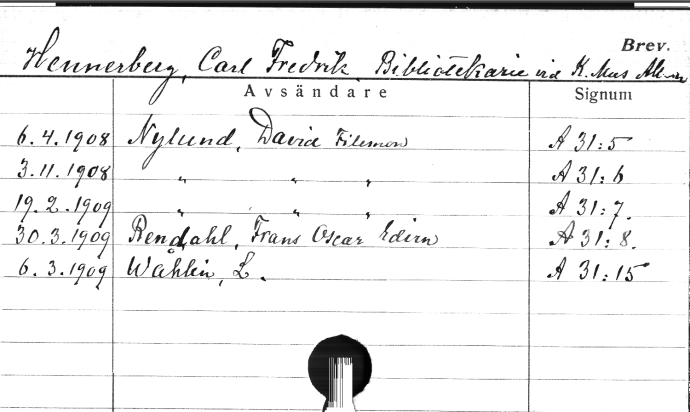 Brev.
Hennerberg, Carl Fredrik, Bibliotekarie vid K. Mus Ak-n
Avsändare Signum
6.4.1908 Nylund, David Filemon A 31:5
3.11.1908 „ „ „ A 31:6
19.2.1909 „ „ „ A 31:7.
30.3.1909 Rendahl, Frans Oscar Edvin A 31:8.
6.3.1909 Wåhlin, L. A 31:15